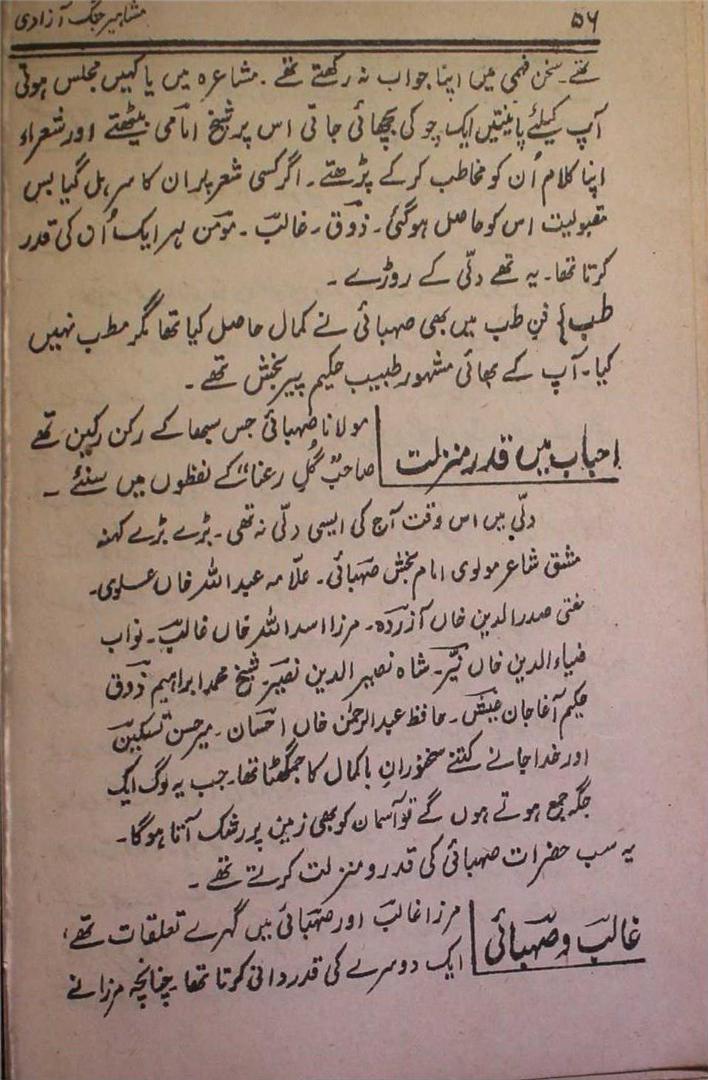 ۵۶
مشاہیر جنگ آزادی
تھے۔ سخن فہمی میں اپنا جواب نہ رکھتے تھے۔ مشاعرہ میں یا کہیں مجلس ہوتی
آپ کیلئے پائینتیں ایک چوکی بچھائی جاتی اس پر شیخ امامی بیٹھتے اور شعراء
اپنا کلام اُن کو مخاطب کر کے پڑھتے۔ اگر کسی شعر پر ان کا سر ہل گیا بس
مقبولیت اس کو حاصل ہو گئی۔ ذوق۔ غالب۔ مومن ہر ایک اُن کی قدر
کرتا تھا۔ یہ تھے دلّی کے روڑے۔
طب} فنِ طب میں بھی صہبائی نے کمال حاصل کیا تھا مگر مطب نہیں
کیا۔ آپ کے بھائی مشہور طبیب حکیم پیر بخش تھے۔
احباب میں قدر منزلت
مولانا صہبائی جس سبھا کے رکن رکین تھے
صاحب گُلِ رعنا" کے لفظوں میں سنئے۔
دلّی میں اس وقت آج کی ایسی دلّی نہ تھی۔ بڑے بڑے کہنہ
مشق شاعر مولوی امام بخش صہبائی۔ علّامہ عبداللہ خاں علوی۔
مفتی صدرالدین خاں آزردہ۔ مرزا اسداللہ خاں غالب۔ نواب
ضیاءالدین خاں نیّر۔ شاہ نصیرالدین نصیر۔ شیخ محمد ابراہیم ذوق
حکیم آغا جان عیش۔ حافظ عبدالرحمٰن خاں احسان۔ میر حسن تسکین
اور خدا جانے کتنے سخنورانِ باکمال کا جمگھٹا تھا۔ جب یہ لوگ ایک
جگہ جمع ہوتے ہوں گے تو آسمان کو بھی زمین پر رشک آتا ہوگا۔
یہ سب حضرات صہبائی کی قدر و منزلت کرتے تھے۔
غالب و صہبائی
مرزا غالب اور صہبائی میں گہرے تعلقات تھے،
ایک دوسرے کی قدردانی کرتا تھا۔ چنانچہ مرزا نے